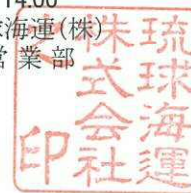 14:00
球海運(株)
営業部
琉球海運
株式会社
印